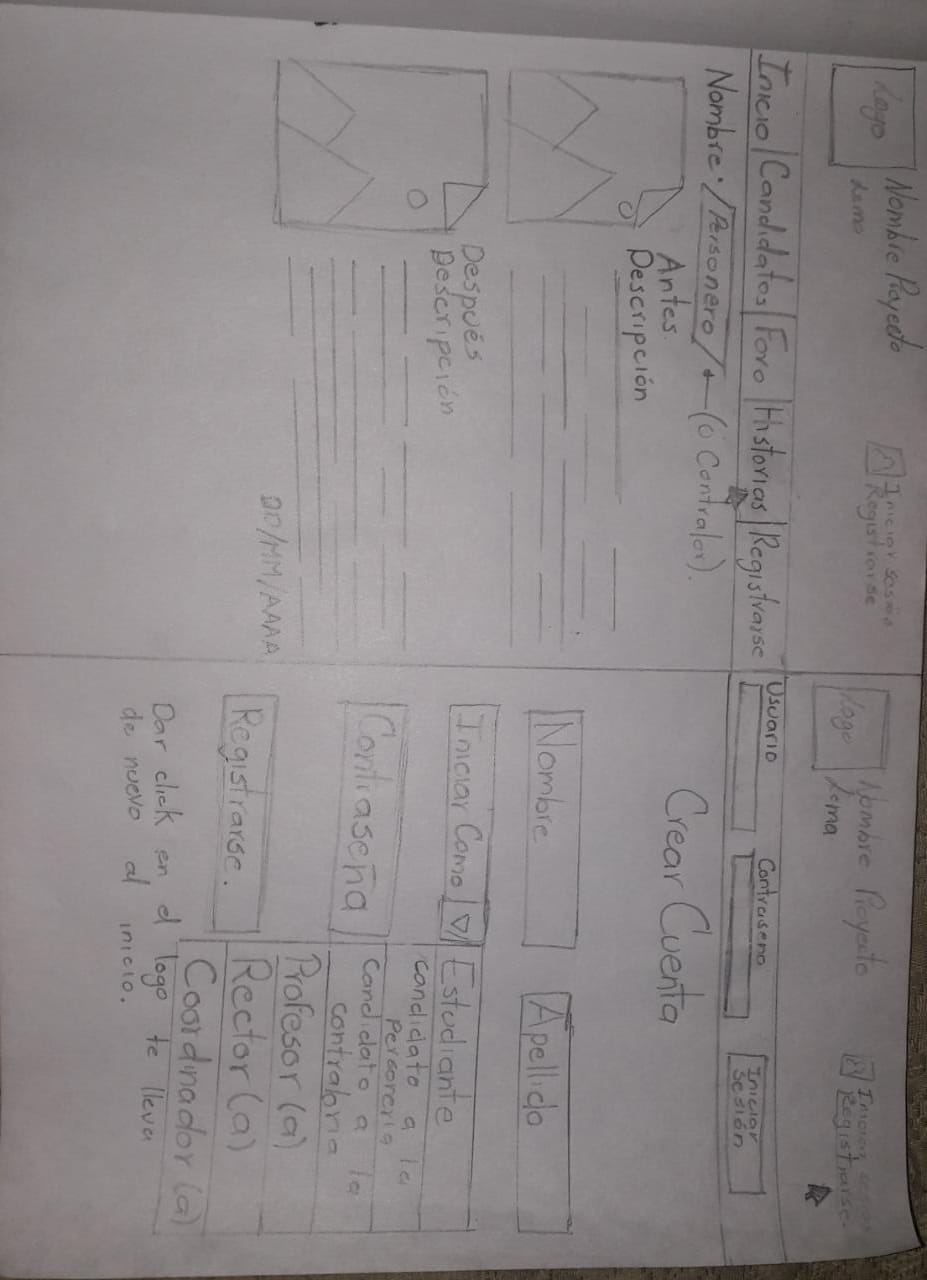 Logo
Nombre Proyecto
Lema
Iniciar sesión
Registrarse
Inicio Candidatos Foro Historias Registrarse
Nombre. Personero (o Contralor).
Antes.
Descripción
Después
Descripción
DD/MM/AAAA
Logo
Nombre Proyecto
Lema
Iniciar sesión
Registrarse.
Usuario Contraseña Iniciar
sesión
Crear Cuenta
Nombre Apellido
Iniciar Como
Estudiante
candidato a la
personería
Candidato a la
contraloria
Profesor (a)
Rector (a)
Coordinador (a)
Contraseña
Registrarse.
Dar click en el logo te lleva
de nuevo al inicio.